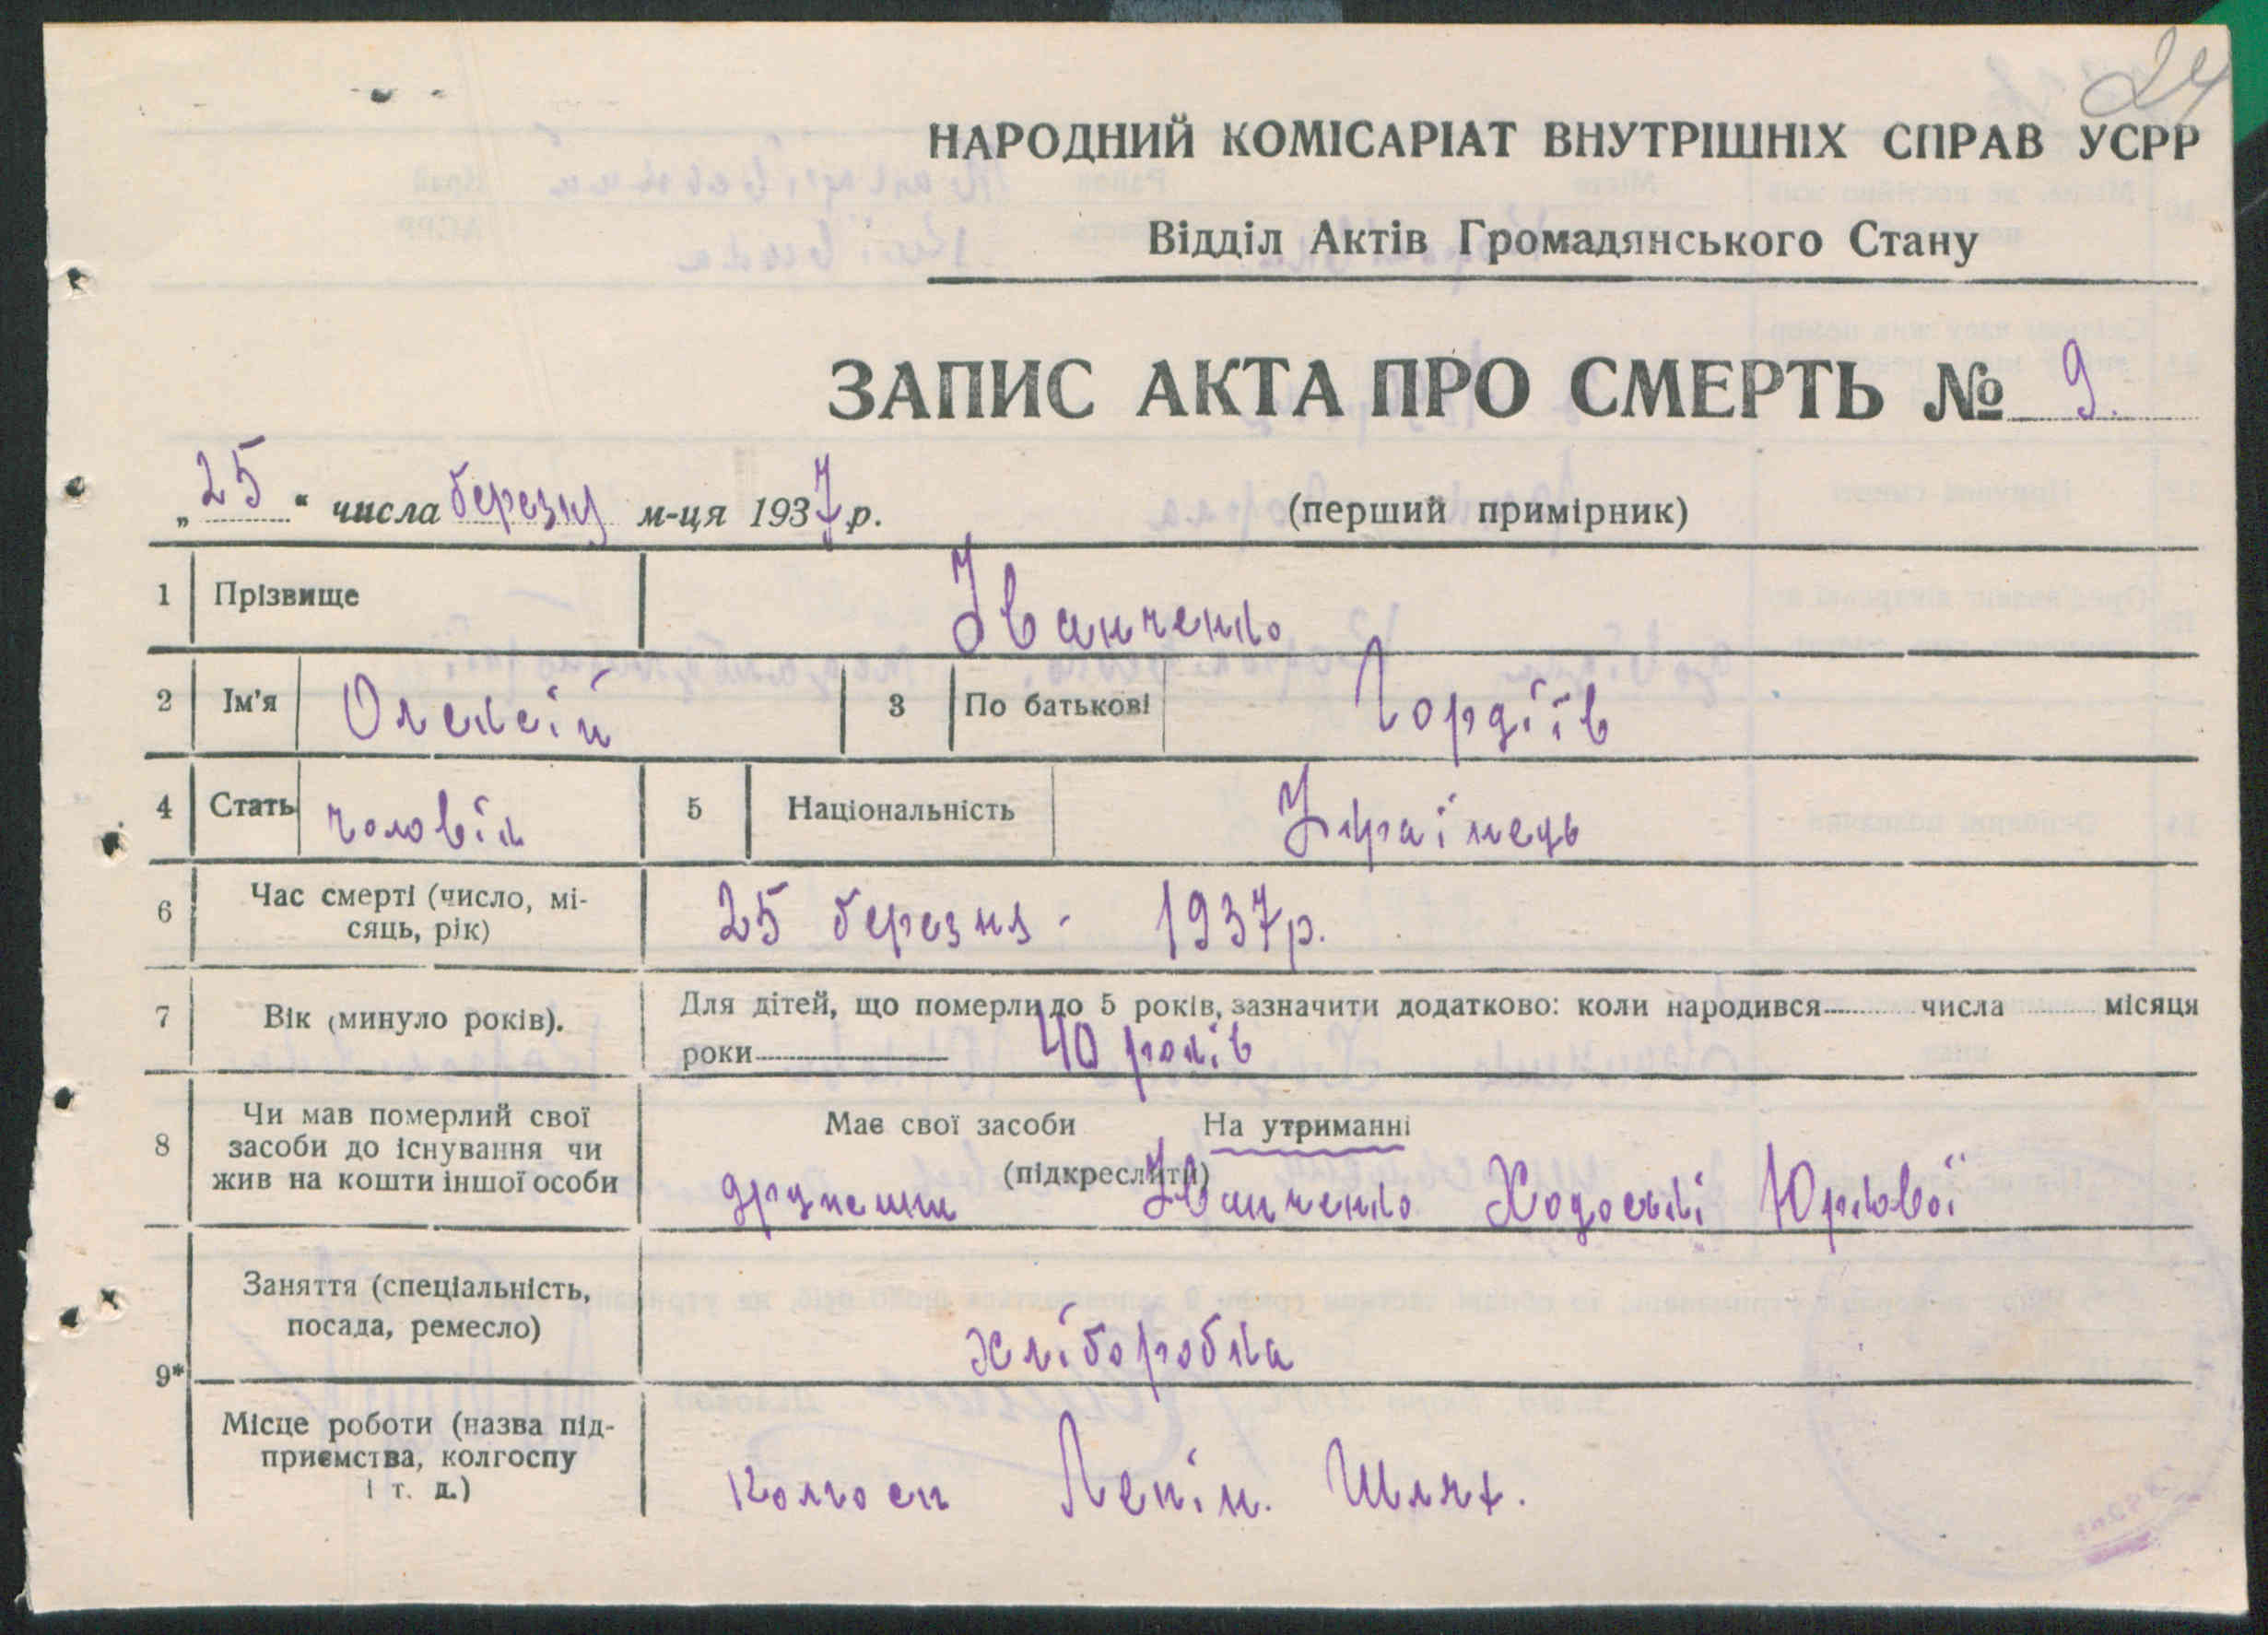 24
НАРОДНИЙ КОМІСАРІАТ ВНУТРІШНІХ СПРАВ УСРР
Відділ Актів Громадянського Стану
ЗАПИС АКТА ПРО СМЕРТЬ № 9.
„25“ числа березня м-ця 1937 р. (перший примірник)
1 Прізвище Іванченко
2 Ім'я Олексій 3 По батькові Гордіїв
4 Стать чоловік 5 Національність Українець
6 Час смерті (число, мі-
сяць, рік) 25 березня - 1937р.
7 Вік (минуло років). Для дітей, що померли до 5 років, зазначити додатково: коли народився числа місяця
роки 40 років
8 Чи мав померлий свої
засоби до існування чи
жив на кошти іншої особи
Має свої засоби На утриманні
(підкреслити)
дружини Іванченко Ходоські Юркової
9* Заняття (спеціальність,
посада, ремесло) хліборобка
Місце роботи (назва під-
приємства, колгоспу
і т. д.) Колгосп Ленін. Шлях.